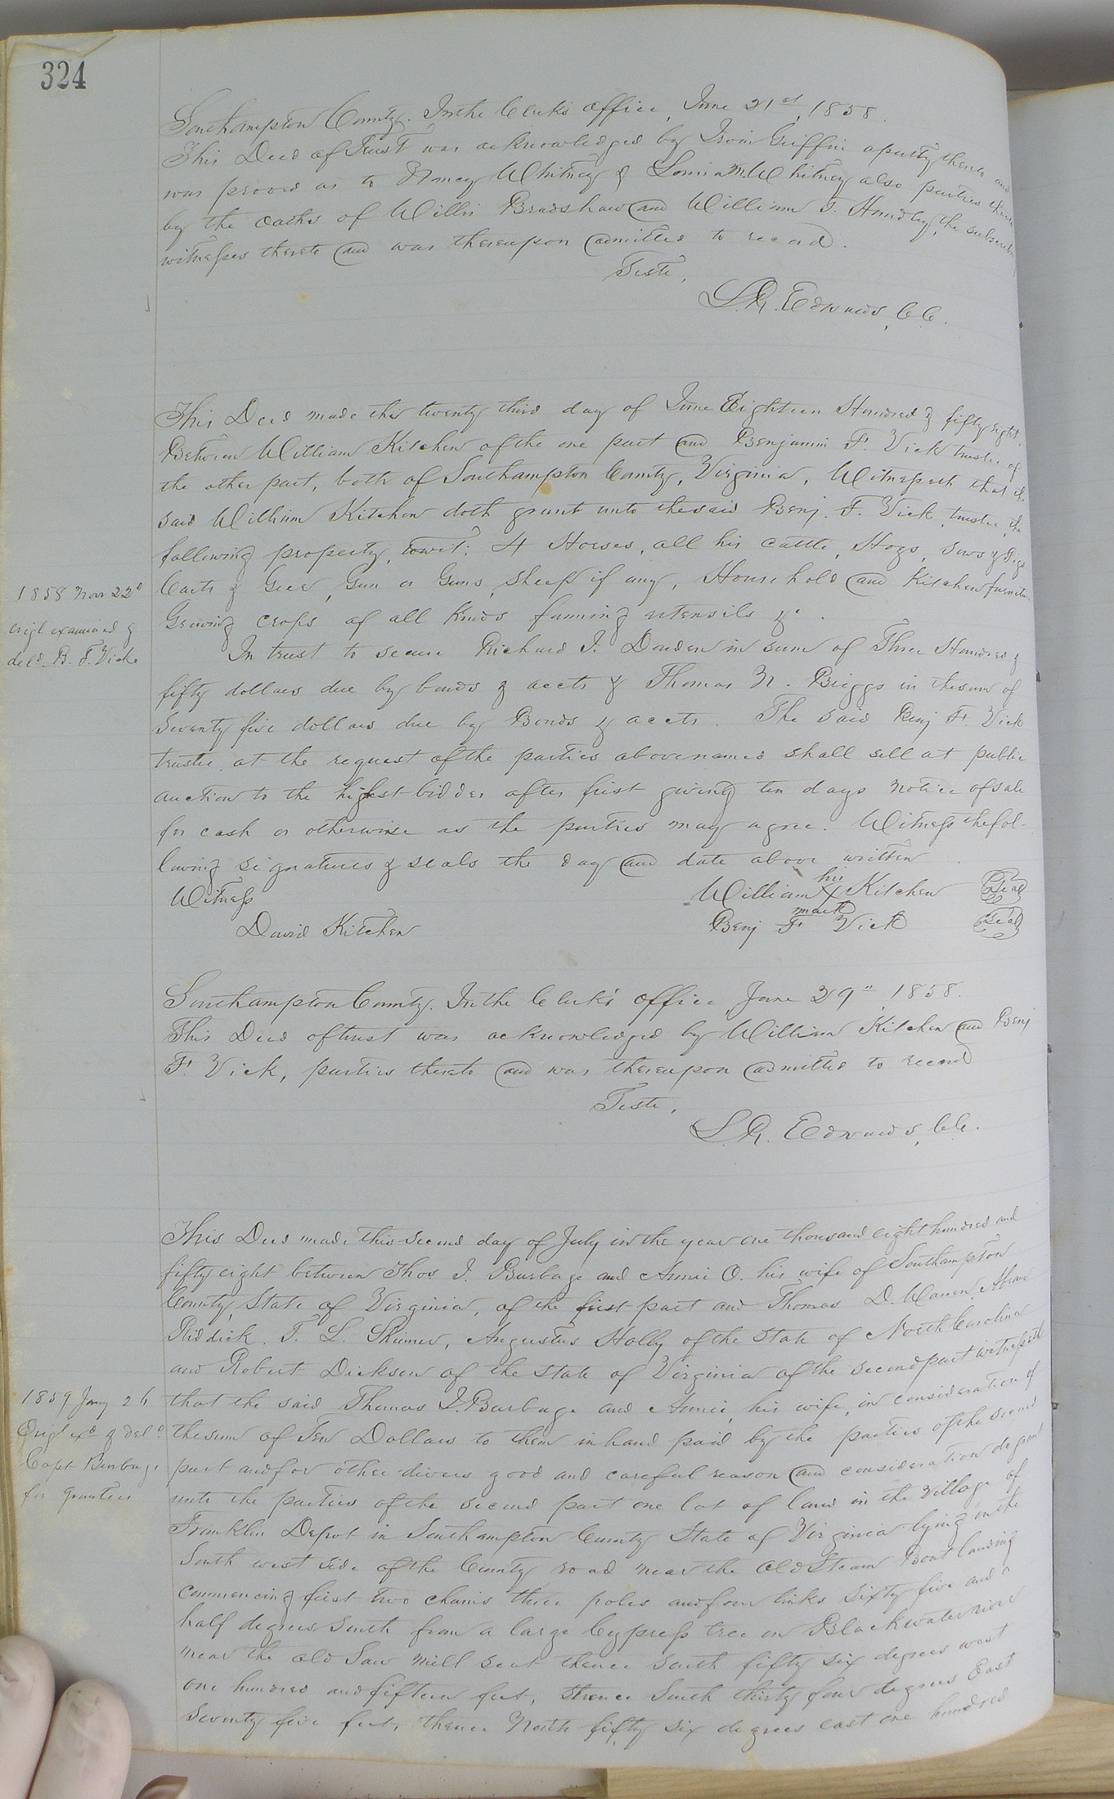 324
Southampton County. In the Clerk's office, June 21st, 1858.
This Deed of Trust was acknowledged by Irvin Griffin a party thereto and
was proved as to Whitney & Whitney also parties thereto
by the oaths of Willis Bradshaw and William T. the subscribing
witnesses thereto and was thereupon admitted to record.
Teste,
L.R. Edwards, C.C.
This Deed made the twenty third day of June Eighteen Hundred & fifty eight.
Between William Kitchen of the one part and Benjamin F. Vick trustee of
the other part, both of Southampton County, Virginia, Witnesseth that the
said William Kitchen doth grant unto the said Benj. F. Vick, trustee, the
following property, towit: 4 Horses, all his cattle, Hogs, Sows & Pigs
Carts & Geer, Gun or Guns, Sheep if any, Household and Kitchen furniture
Growing crops of all kinds farming utensils &c.
1858 Nov 22d
origl examined &
deld B. F. Vick
In trust to secure Richard J. Darden in sum of Three Hundred &
fifty dollars due by bonds & accts & Thomas N. Briggs in the sum of
Seventy five dollars due by Bonds & accts. The said Benj F. Vick
trustee at the request of the parties abovenamed shall sell at public
auction to the highest bidder after first giving ten days notice of sale
for cash or otherwise as the parties may agree. Witness the fol-
lowing signatures & seals the day and date above written
Witness William his X mark Kitchen Seal
David Kitchen Benj F Vick Seal
Southampton County. In the Clerk's office June 29th 1858.
This Deed of trust was acknowledged by William Kitchen and Benj
F. Vick, parties thereto and was thereupon admitted to record
Teste,
L.R. Edwards, C.C.
This Deed made this second day of July in the year one thousand eight hundred and
fifty eight between Thos J. Burbage and Annie O. his wife of Southampton
County, State of Virginia, of the first part and Thomas D. Warren,
Riddick T. L. Skinner, Augustus Holly of the State of North Carolina
and Robert Dickson of the State of Virginia of the second part witnesseth
that the said Thomas J. Burbage and Annie, his wife, in consideration of
the sum of Ten Dollars to them in hand paid by the parties of the second
part and for other divers good and careful reason and consideration do grant
unto the parties of the second part one lot of land in the Village of
1859 Jany 26
Origl exd & deld
Capt Burbage
for Grantees
Franklin Depot in Southampton County State of Virginia lying on the
South west side of the County road near the Old Steam Boat landing
commencing first two chains three poles and four links sixty five and a
half degrees South from a large Cypress tree on Blackwater river
near the old Saw mill seat thence South fifty six degrees west
one hundred and fifteen feet, thence South thirty four degrees East
Seventy five feet, thence North fifty six degrees east one hundred